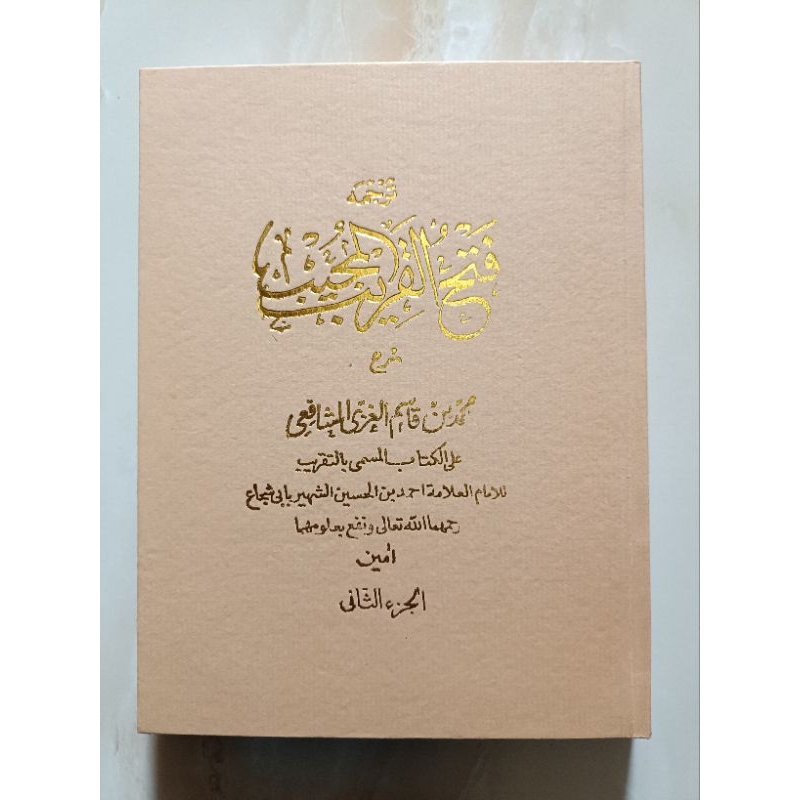 ترجمه
فَتْحُ الْقَرِيبِ الْمُجِيبِ
شرح
محمد بن قاسم الغزى الشافعى
على الكتاب المسمى بالتقريب
للامام العلامة احمد بن الحسين الشهير بابى شجاع
رحمهما الله تعالى ونفع بعلومهما
أمين
الجزء الثانى